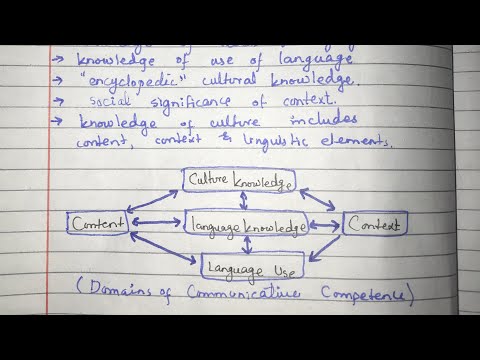 → knowledge of use of language
→ "encyclopedic" cultural knowledge.
→ social significance of context.
→ knowledge of culture includes
content, context & linguistic elements.
Culture knowledge
Content
language knowledge
Context
Language Use
(Domains of Communicative Competence)